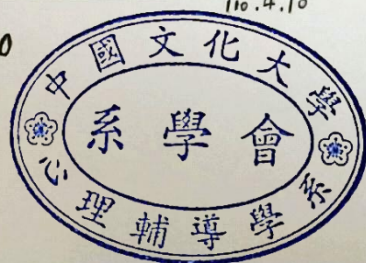 110.4.10
0
中國文化大學
系學會
心理輔導學系